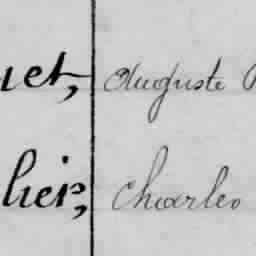 uet, Auguste
lier, Charles